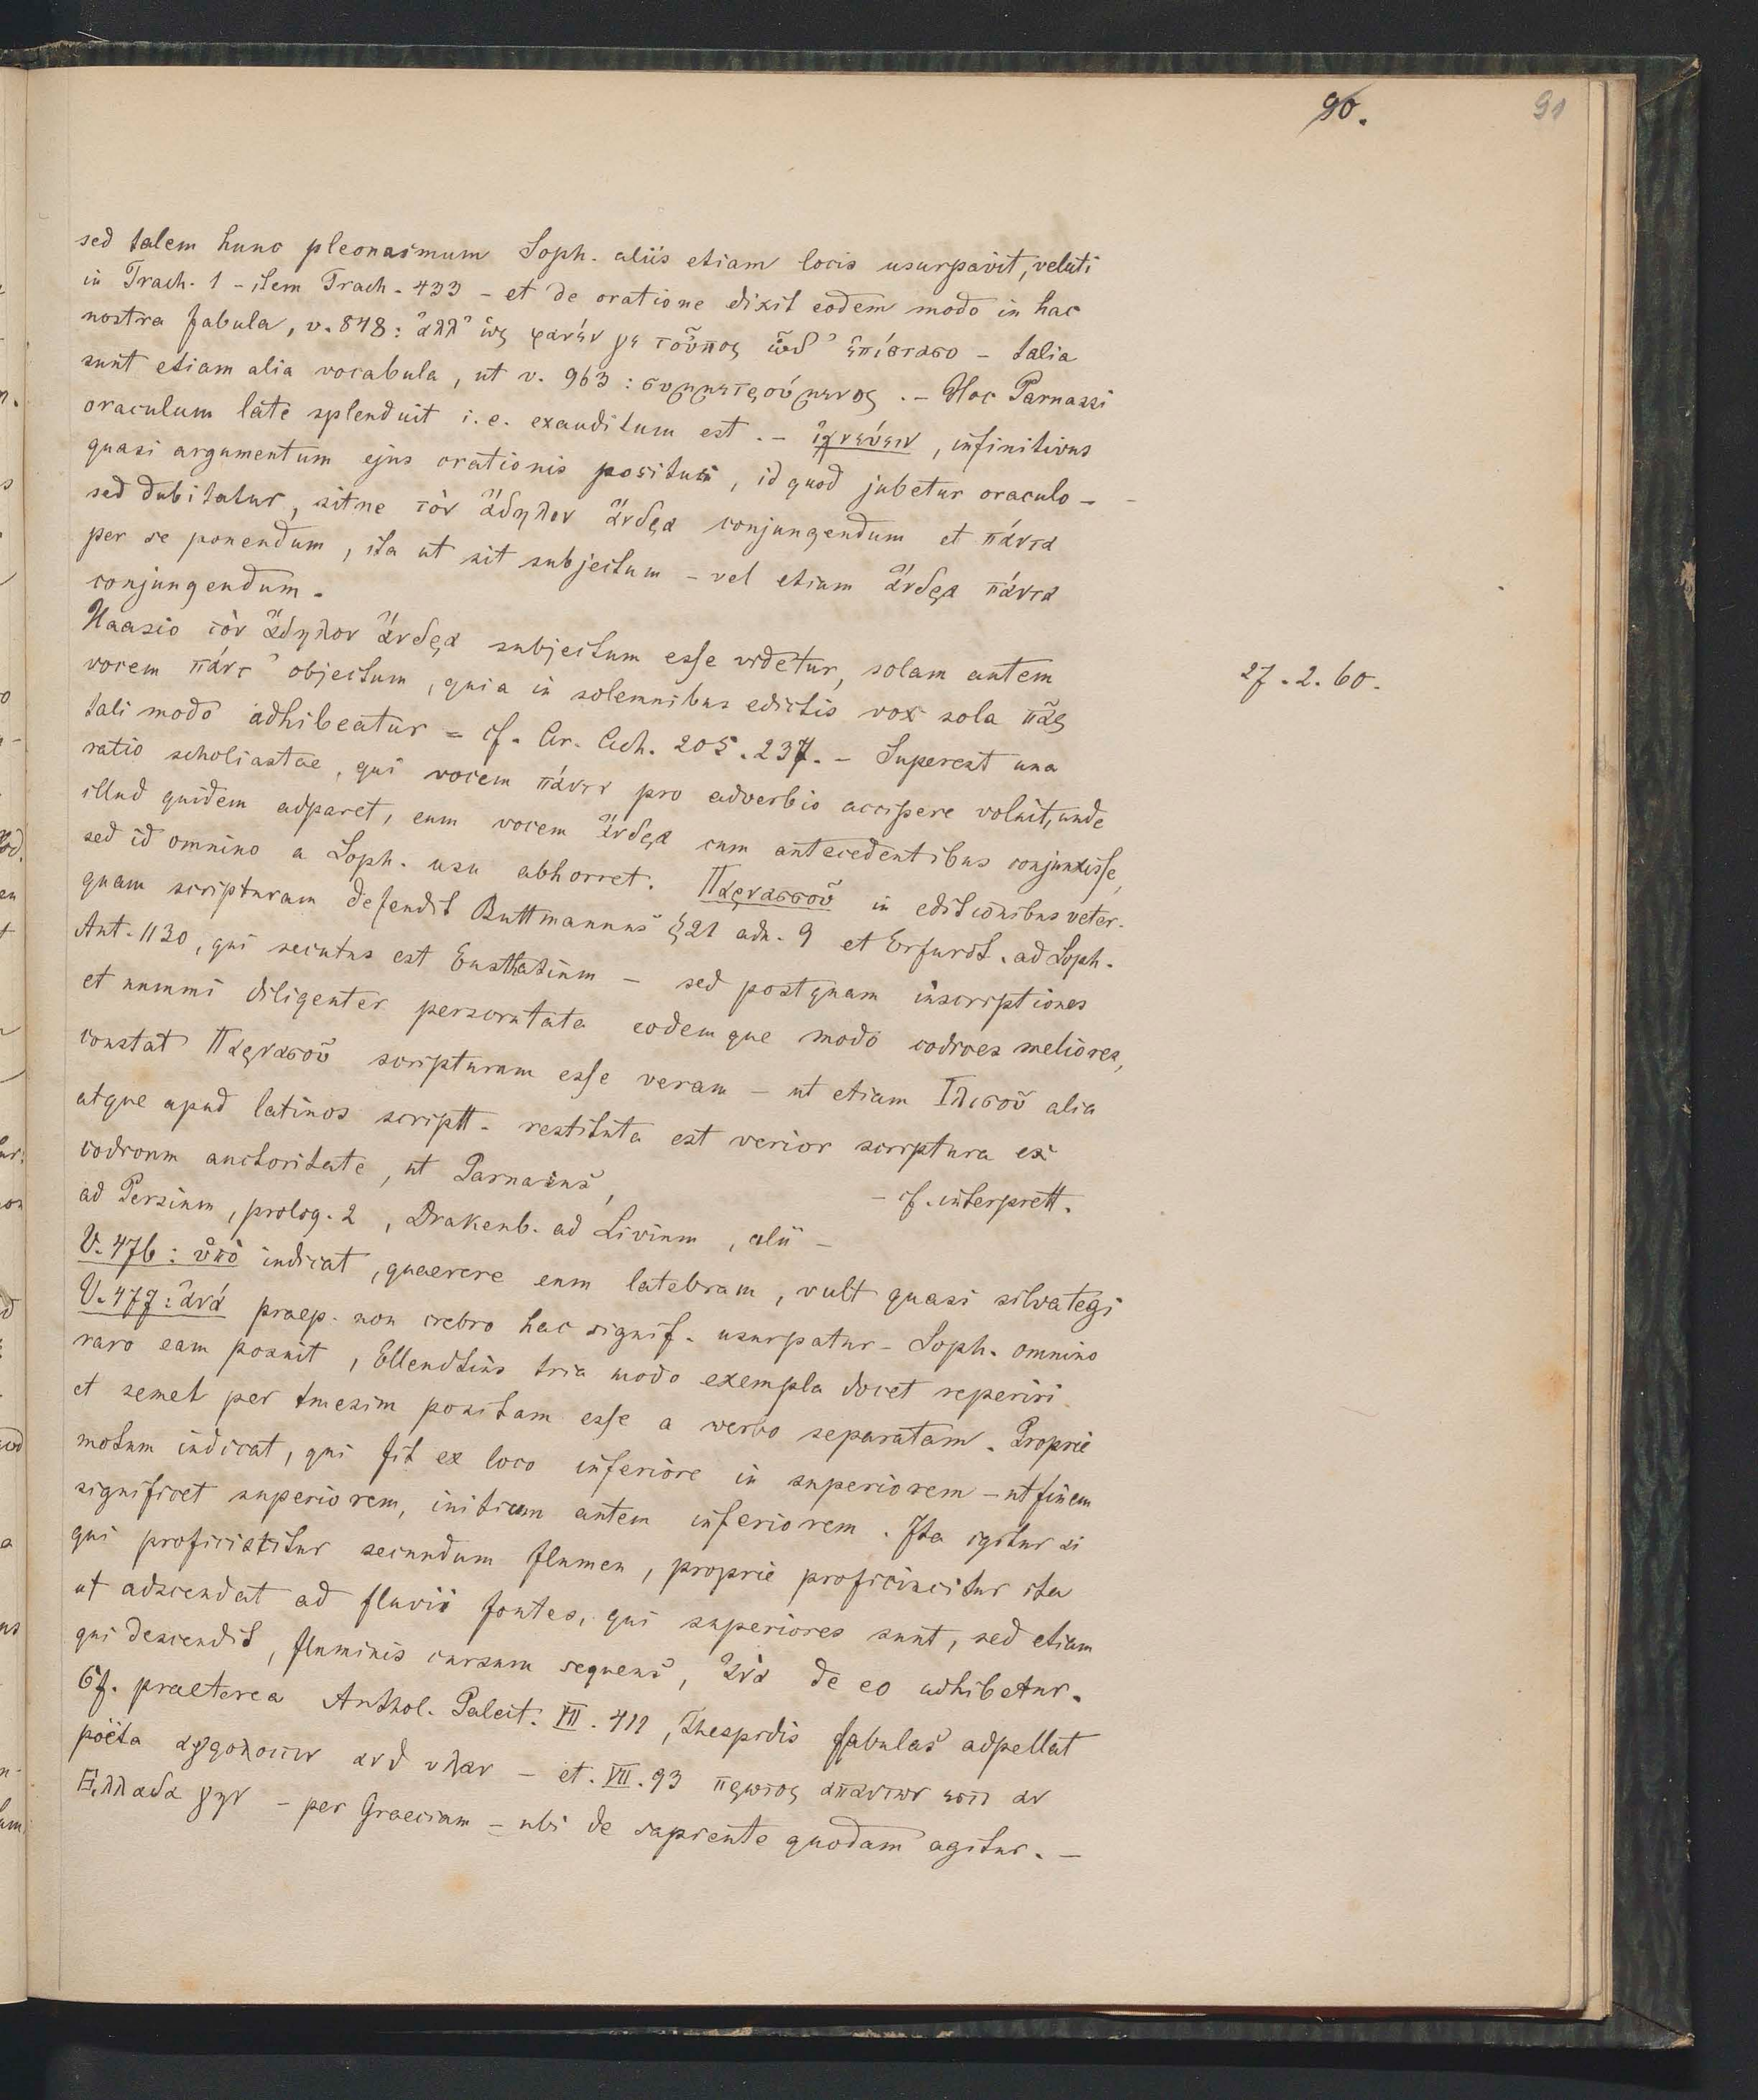 90. 91
sed talem hunc pleonasmum Soph. aliis etiam locis usurpavit, veluti
in Trach. 1 – item Trach. 433 – et de oratione dixit eodem modo in hac
nostra fabula, v. 848: ἀλλ' ὡς φανέν γε τοὔπος ὧδ' ἐπίστασο – talia
sunt etiam alia vocabula, ut v. 963: συμμετρούμενος. – Hoc Parnassi
oraculum late splenduit i. e. exauditum est. – ἰχνεύειν, infinitivus
quasi argumentum ejus orationis positus, id quod jubetur oraculo –
sed dubitatur, sitne τὸν ἄδηλον ἄνδρα conjungendum et πάντα
per se ponendum, ita ut sit subjectum – vel etiam ἄνδρα πάντα
conjungendum.
Haasio τὸν ἄδηλον ἄνδρα subjectum esse videtur, solam autem
vocem πάντ' objectum, quia in solemnibus edictis vox sola πᾶς
27. 2. 60.
tali modo adhibeatur = cf. Ar. Ach. 205. 237. – Superest una
ratio scholiastae, qui vocem πάντα pro adverbio accipere voluit, unde
illud quidem adparet, eum vocem ἄνδρα cum antecedentibus conjunxisse,
sed id omnino a Soph. usu abhorret. Παρνασσοῦ in editionibus veter.
quam scripturam defendit Buttmannus §21 adn. 9 et Erfurdt. ad Soph.
Ant. 1130, qui secutus est Eusthatium – sed postquam inscriptiones
et nummi diligenter perscrutata eodemque modo codices meliores,
constat Παρνασοῦ scripturam esse veram – ut etiam Ἰλισοῦ alia
atque apud latinos scriptt. restituta est verior scriptura ex
codicum auctoritate, ut Parnasus, – cf. interprett.
ad Persium, prolog. 2, Drakenb. ad Livium, alii –
V. 476: ὑπὸ indicat, quaerere eum latebram, vult quasi silva tegi
V. 477: ἀνά praep. non crebro hac signif. usurpatur – Soph. omnino
raro eam posuit, Ellendtius tria modo exempla docet reperiri
et semel per tmesim positam esse a verbo separatam. Proprie
motum indicat, qui fit ex loco inferiore in superiorem – ut finem
significet superiorem, initium autem inferiorem. Ita igitur si
qui proficistitur secundum flumen, proprie proficiscitur ita
ut adscendat ad fluvii fontes, qui superiores sunt, sed etiam
qui descendit, fluminis cursum sequens, ἀνὰ de eo adhibetur.
Cf. praeterea Anthol. Palat. VII. 411, Thespidis fabulas adpellat
poëta αγροιωτιν ανδ υλαν – et. VII. 93 πρωτος απαντων εστι αν
Ελλαδα γην – per Graeciam – ubi de sapiente quodam agitur. –